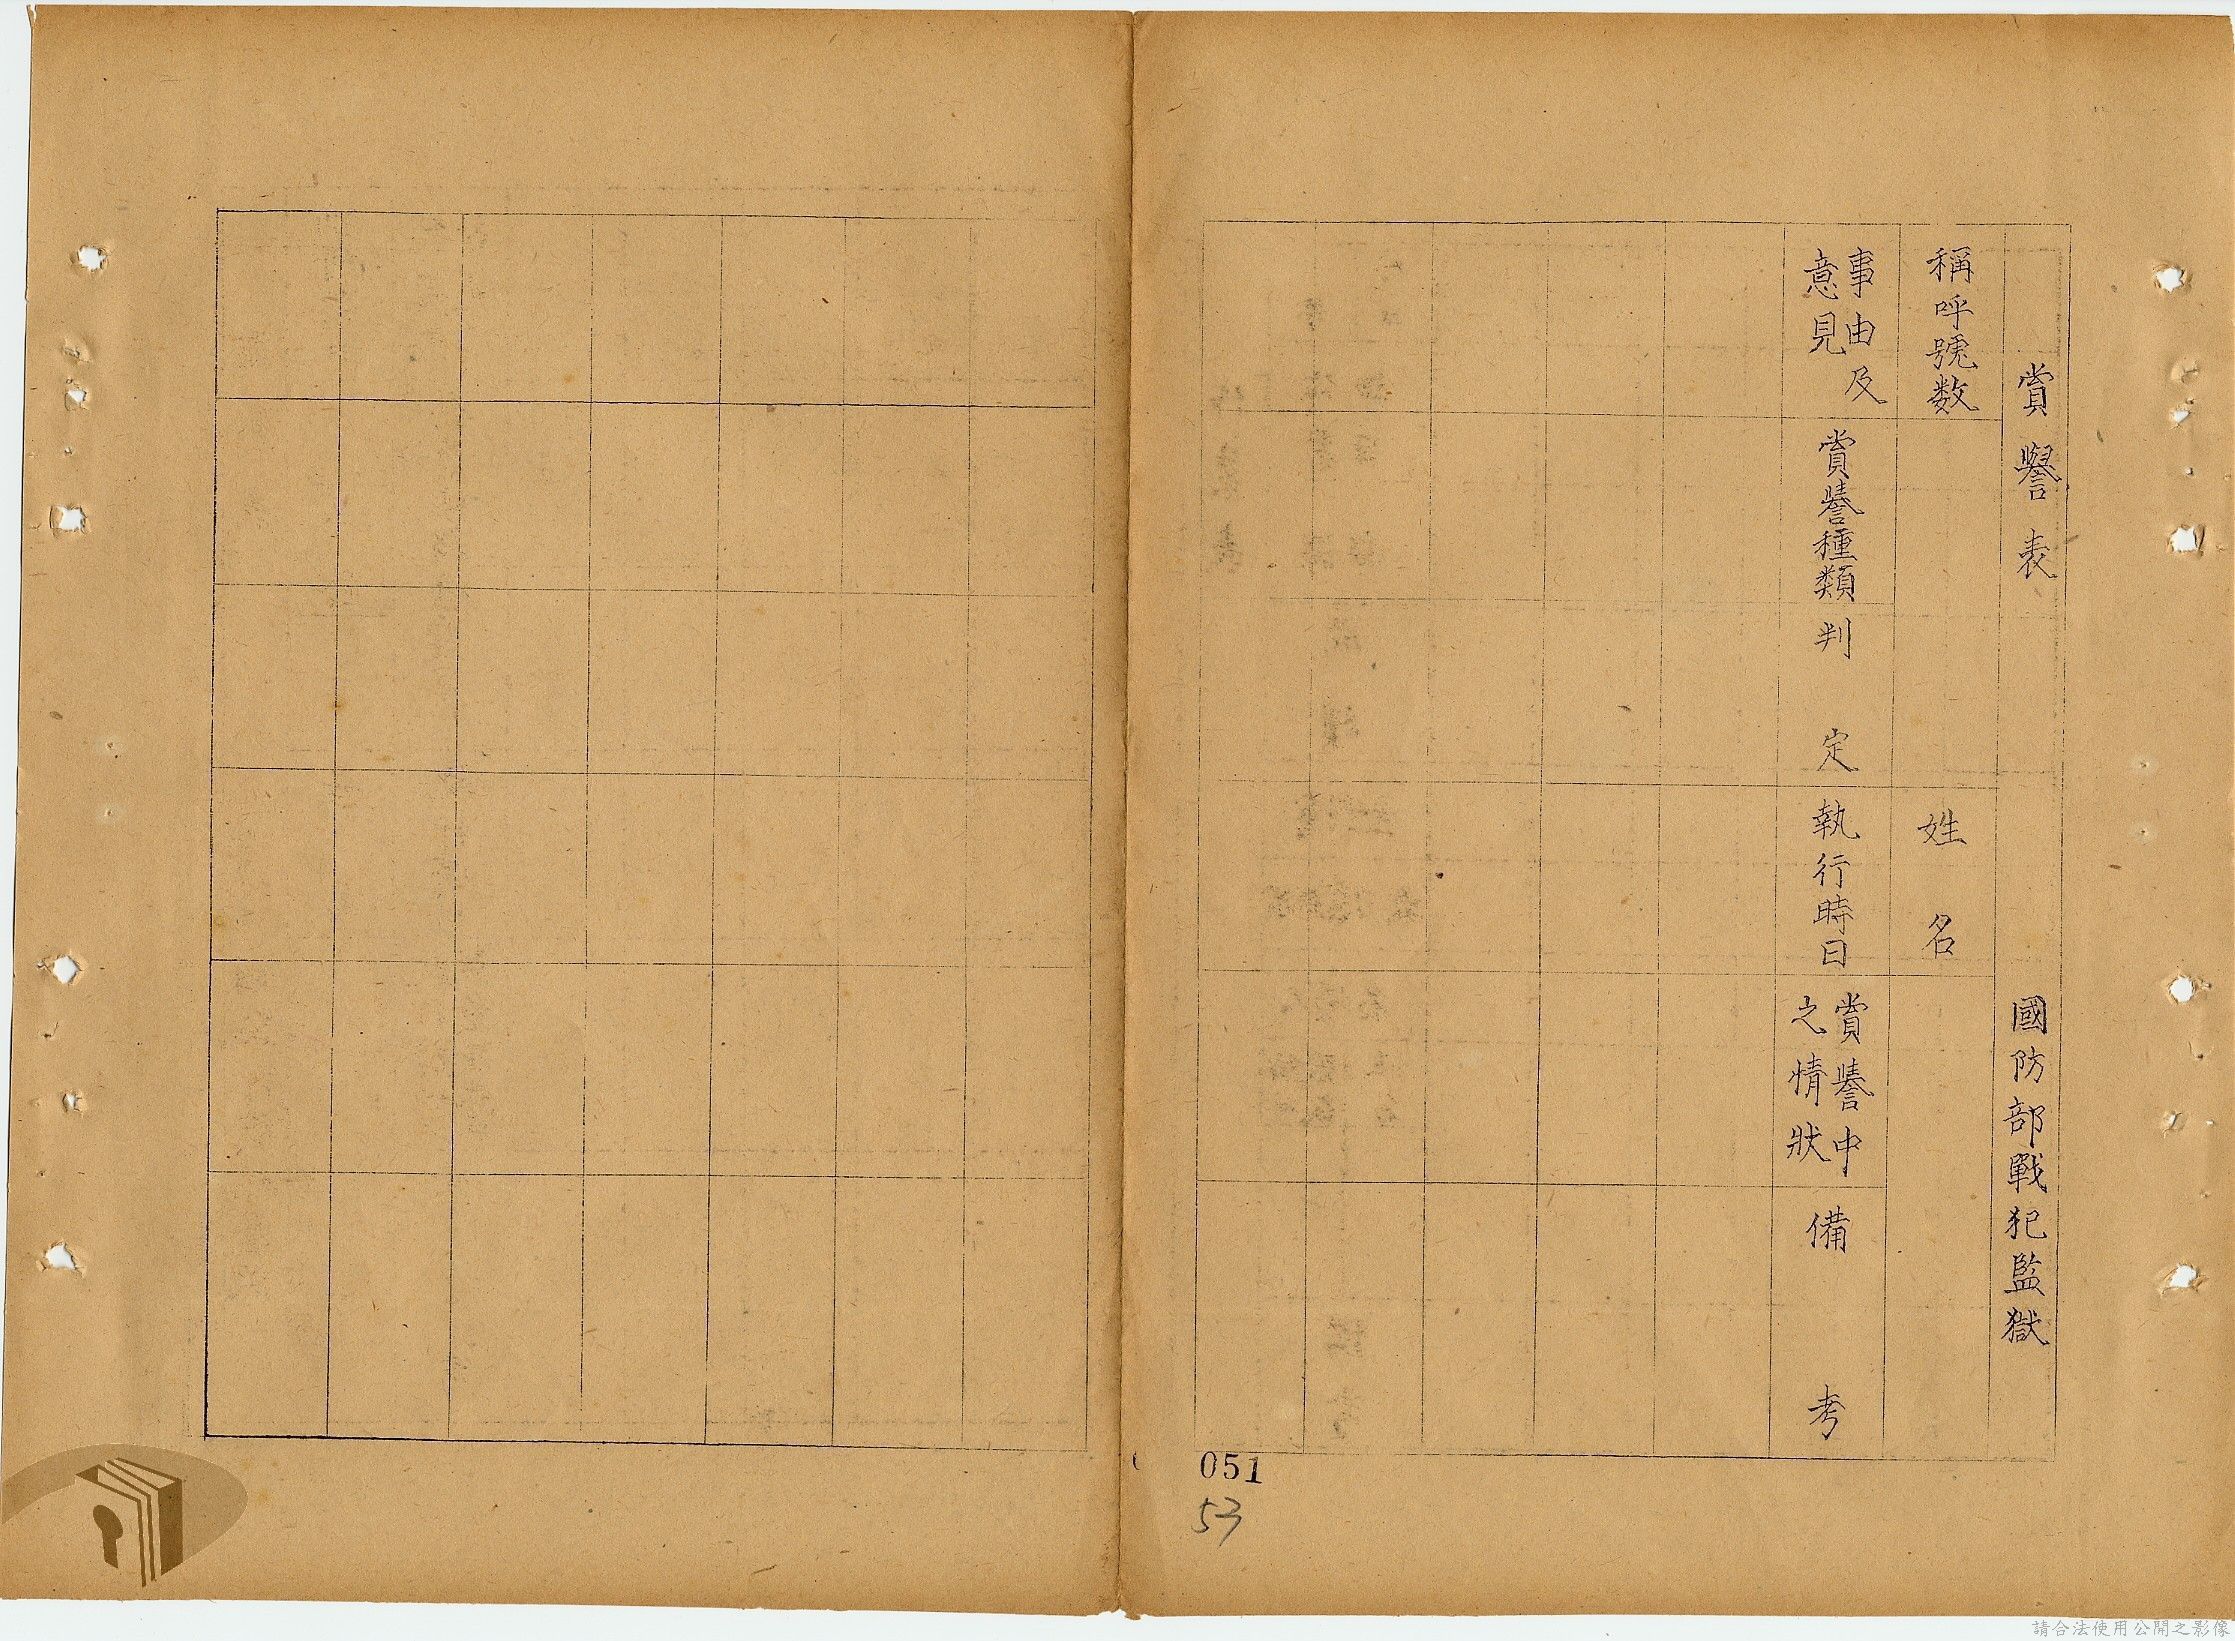 賞譽表
國防部戰犯監獄
稱呼號数
姓名
事由及
意見
賞譽種類
判定
執行時日
賞譽中
之情狀
備考
051
53
請合法使用公開之影像